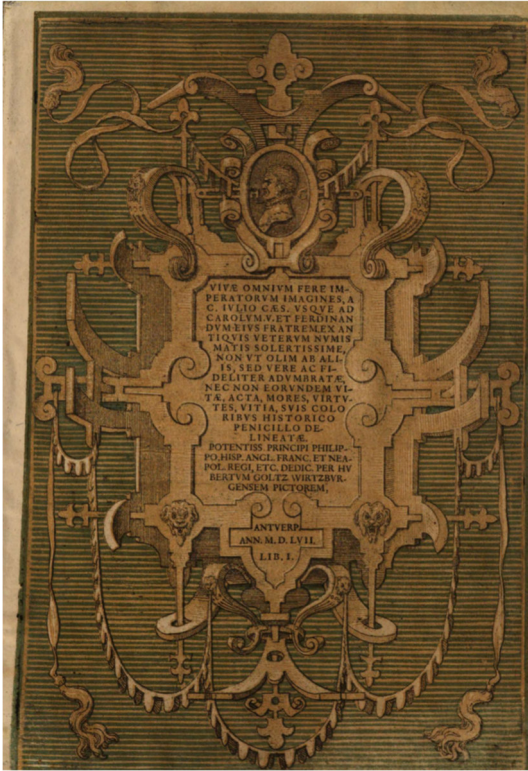 VIVÆ OMNIVM FERE IM-
PERATORVM IMAGINES, A
C. IVLIO CÆS. VSQVE AD
CAROLVM.V. ET FERDINAN
DVM EIVS FRATREM, EX AN
TIQVIS VETERVM NVMIS
MATIS SOLERTISSIME,
NON VT OLIM AB ALI-
IS, SED VERE AC FI-
DELITER ADVMBRATÆ,
NEC NON EORVNDEM VI-
TÆ, ACTA, MORES, VIRTV-
TES, VITIA, SVIS COLO
RIBVS HISTORICO
PENICILLO DE-
LINEATÆ.
POTENTISS. PRINCIPI PHILIP-
PO, HISP. ANGL. FRANC. ET NEA-
POL. REGI, ETC. DEDIC. PER HV
BERTVM GOLTZ WIRTZBVR-
GENSEM PICTOREM,
ANTVERP.
ANN. M. D. LVII.
LIB. I.